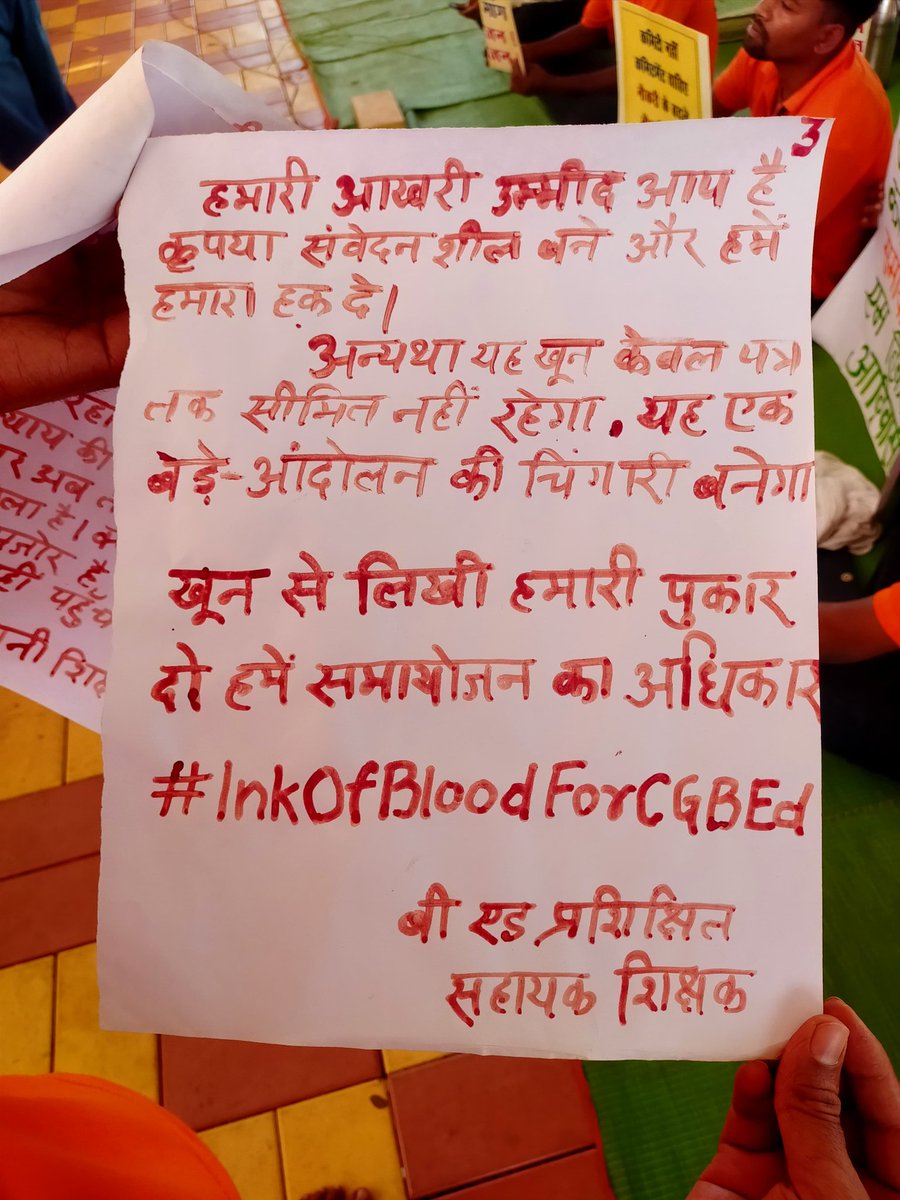 3
हमारी आखरी उम्मीद आप है
कृपया संवेदनशील बने और हमें
हमारा हक दे।
अन्यथा यह खून केवल पत्र
तक सीमित नहीं रहेगा, यह एक
बड़े-आंदोलन की चिंगारी बनेगा
खून से लिखी हमारी पुकार
दो हमें समायोजन का अधिकार
#InkOfBloodForCGBEd
बी एड प्रशिक्षित
सहायक शिक्षक
कमिटी नहीं
कमिटमेंट चाहिए
नौकरी के बदले